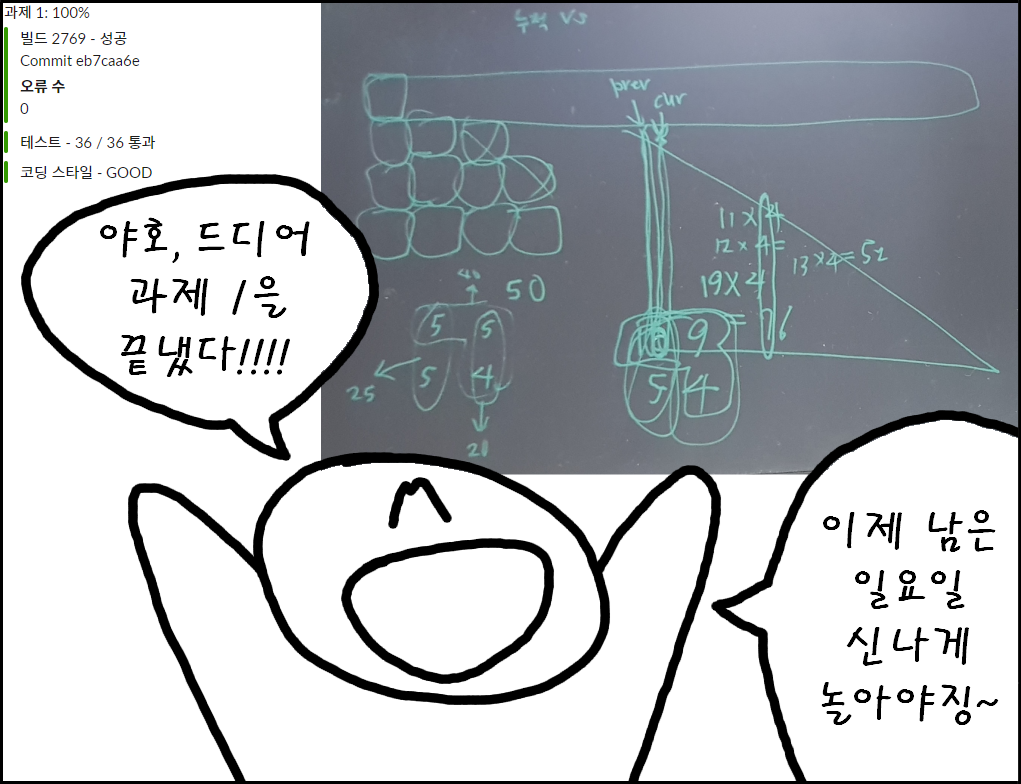 과제 1: 100%
빌드 2769 - 성공
Commit eb7caa6e
오류 수
0
테스트 - 36 / 36 통과
코딩 스타일 - GOOD
누적 V3
prev
cur
11 × 4
12 × 4 =
19 × 4
= 76
13 × 4 = 52
50
5
5
5
4
25
20
9
5
4
야호, 드디어
과제 1을
끝냈다!!!!
이제 남은
일요일
신나게
놀아야징~